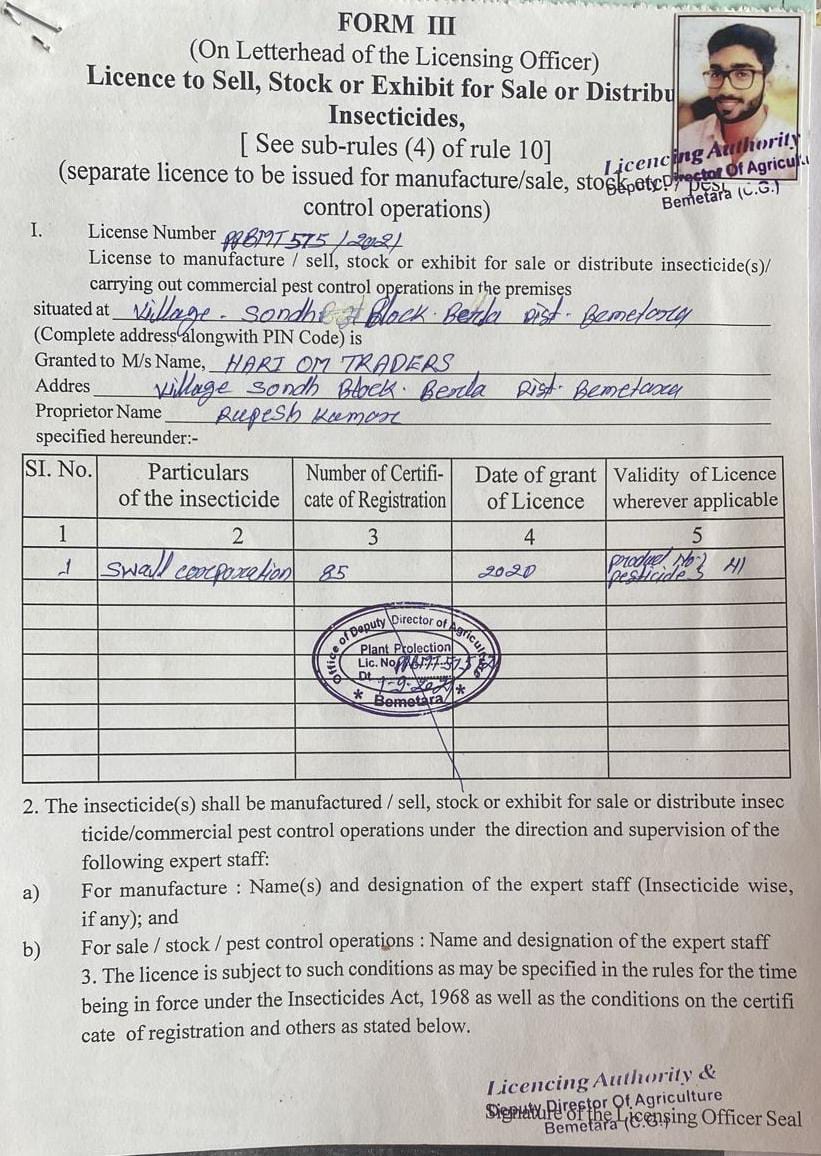 FORM III
(On Letterhead of the Licensing Officer)
Licence to Sell, Stock or Exhibit for Sale or Distribu
Insecticides,
[ See sub-rules (4) of rule 10]
(separate licence to be issued for manufacture/sale, stock, etc. / pest
control operations)
Licencing Authority
Deputy Director Of Agricul
Bemetara (C.G.)
I. License Number 575/2021
License to manufacture / sell, stock or exhibit for sale or distribute insecticide(s)/
carrying out commercial pest control operations in the premises
situated at Village - Sondh Block - Berla Dist - Bemetara
(Complete address alongwith PIN Code) is
Granted to M/s Name, HARI OM TRADERS
Addres Village Sondh Block - Berla Dist - Bemetara
Proprietor Name Rupesh Kumar
specified hereunder:-
SI. No. Particulars of the insecticide Number of Certifi- cate of Registration Date of grant of Licence Validity of Licence wherever applicable
1 2 3 4 5
1 Swall coorporation 85 2020 product No- pesticide
Office of Deputy Director of Agriculture
Plant Protection
Lic. No. 575
Dt.
* Bemetara *
2. The insecticide(s) shall be manufactured / sell, stock or exhibit for sale or distribute insec
ticide/commercial pest control operations under the direction and supervision of the
following expert staff:
a) For manufacture : Name(s) and designation of the expert staff (Insecticide wise,
if any); and
b) For sale / stock / pest control operations : Name and designation of the expert staff
3. The licence is subject to such conditions as may be specified in the rules for the time
being in force under the Insecticides Act, 1968 as well as the conditions on the certifi
cate of registration and others as stated below.
Licencing Authority &
Deputy Director Of Agriculture
Signature of the Licensing Officer Seal
Bemetara (C.G.)